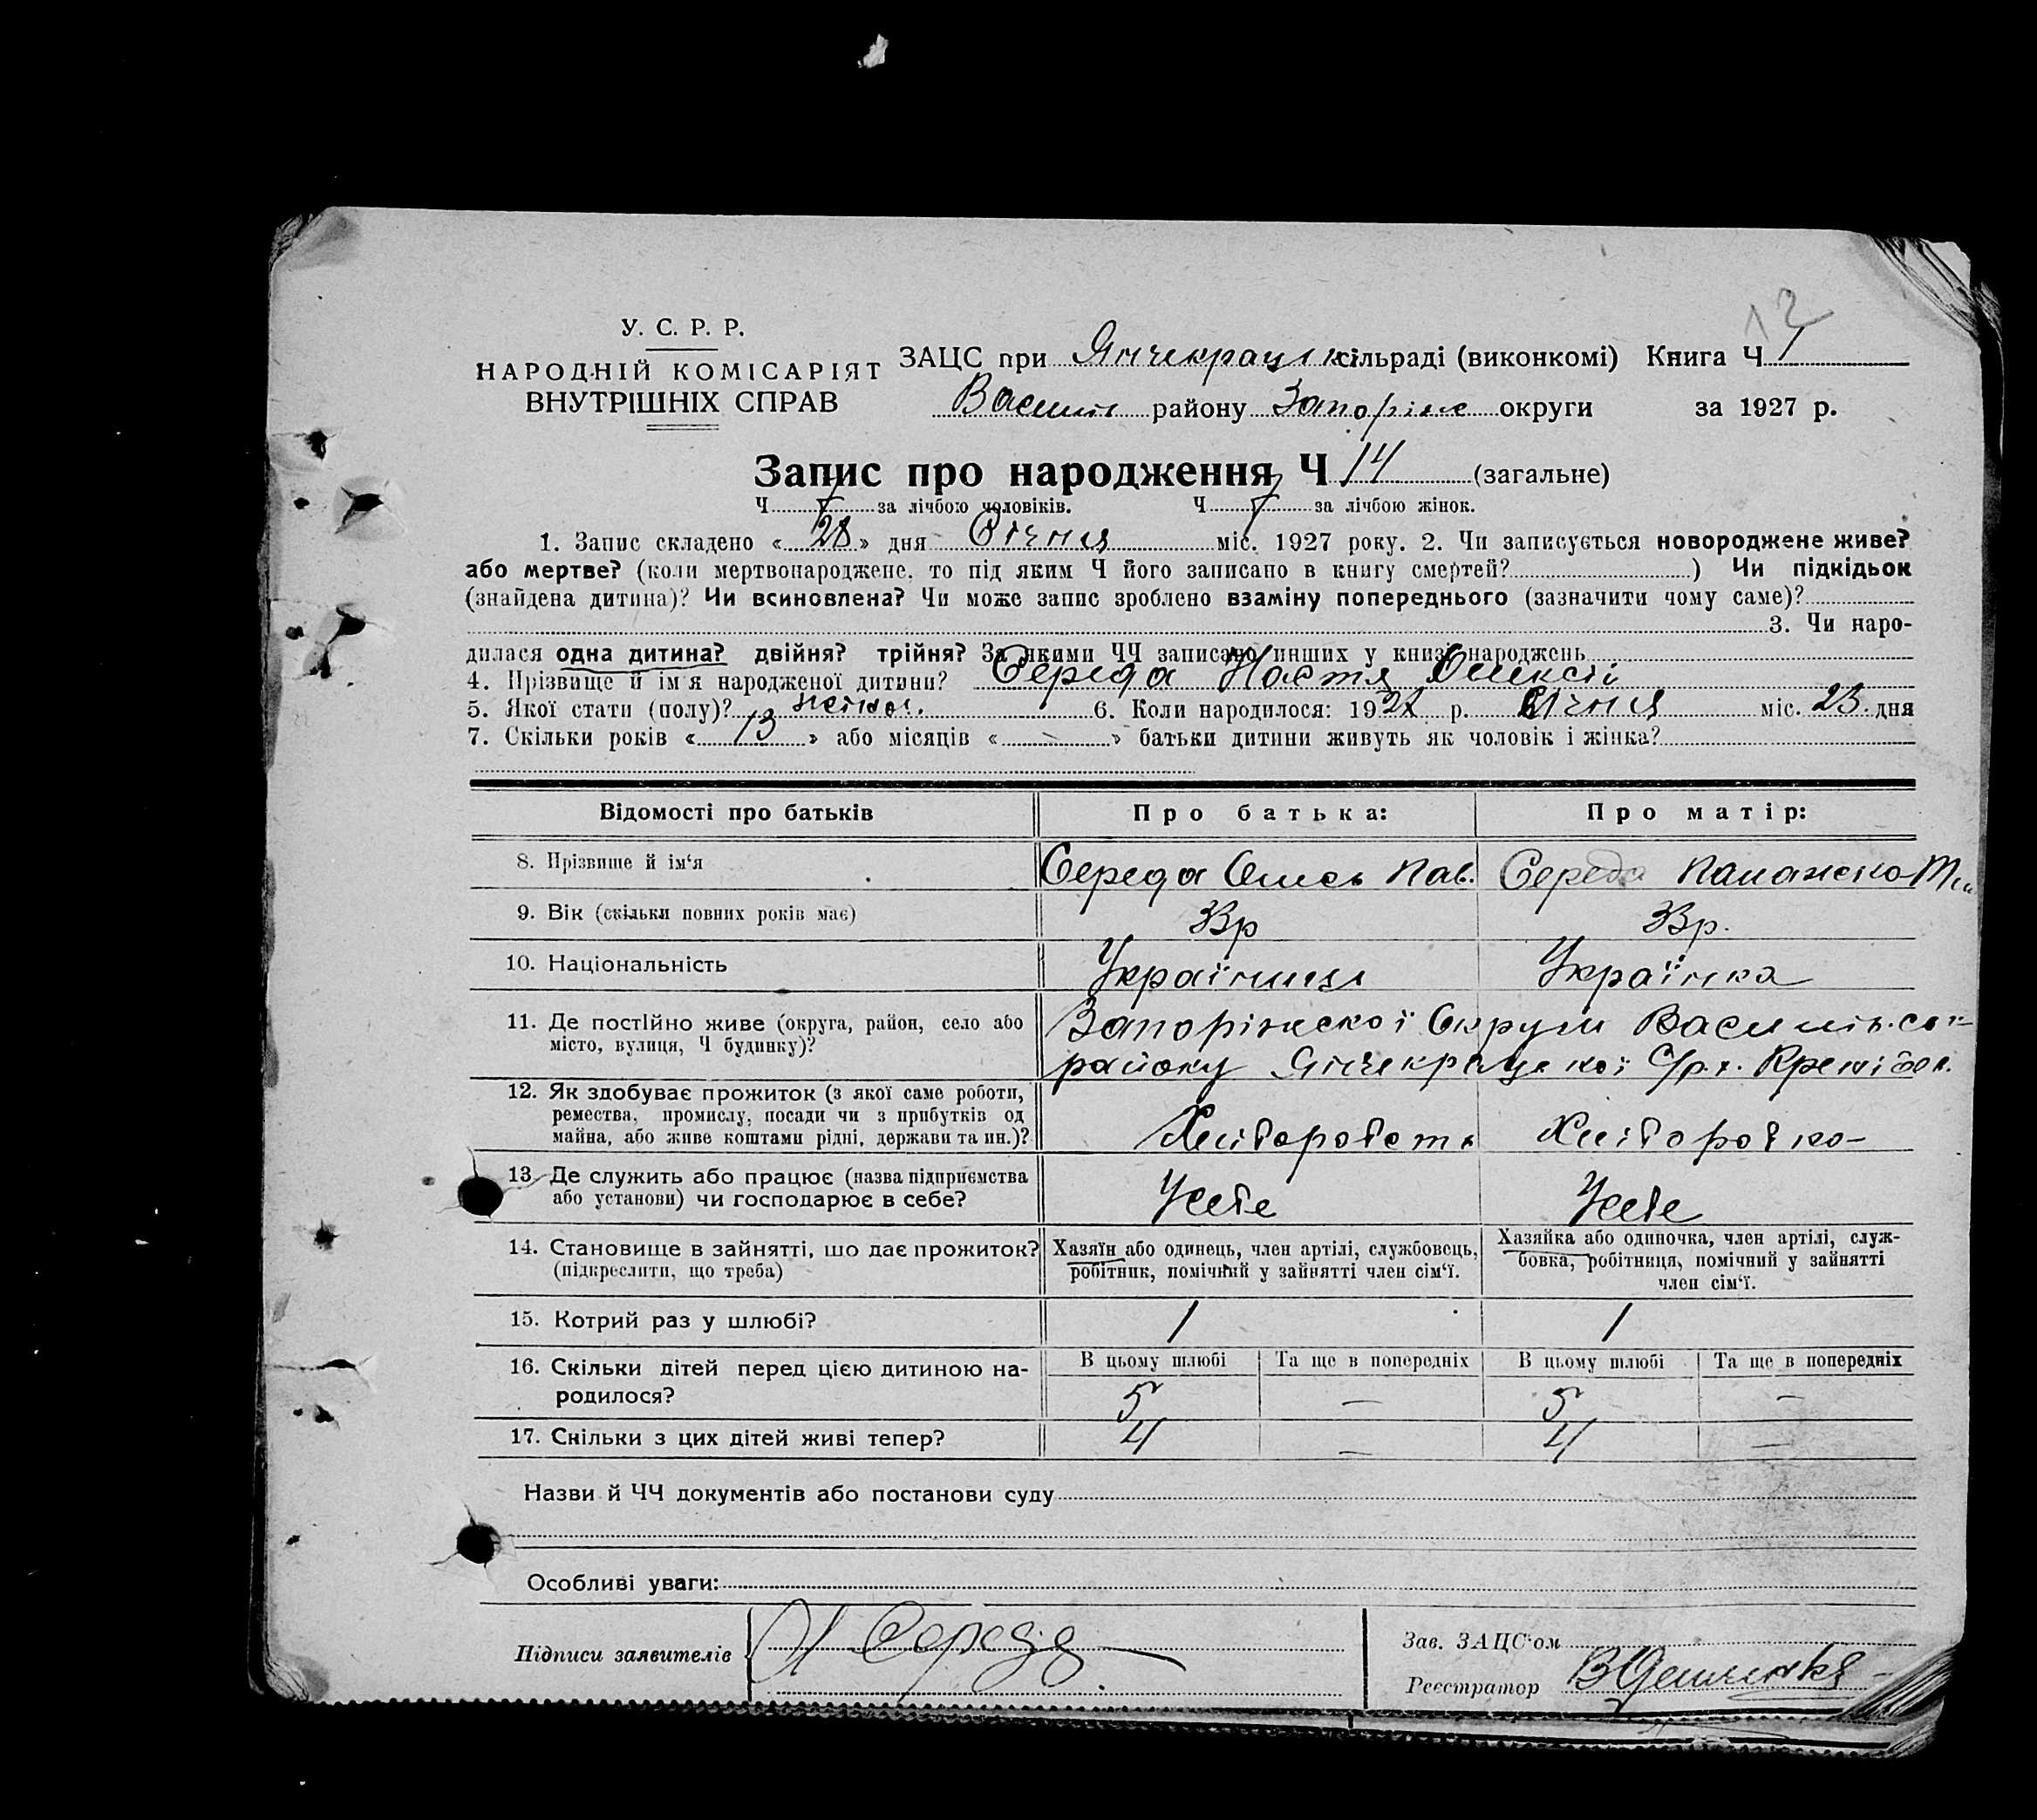 12
У. С. Р. Р.
НАРОДНІЙ КОМІСАРІЯТ
ВНУТРІШНІХ СПРАВ
ЗАЦС при Янчекрацькій сільраді (виконкомі) Книга Ч 1
Васили району Запоріж округи за 1927 р.
Запис про народження Ч 14 (загальне)
Ч 7 за лічбою чоловіків. Ч 7 за лічбою жінок.
1. Запис складено «28» дня Січня міс. 1927 року. 2. Чи записується новороджене живе?
або мертве? (коли мертвонароджене, то під яким Ч його записано в книгу смертей? ) Чи підкідьок
(знайдена дитина)? Чи всиновлена? Чи може запис зроблено взаміну попереднього (зазначити чому саме)?
3. Чи наро-
дилася одна дитина? двійня? трійня? За якими ЧЧ записано инших у книзі народжень
4. Прізвище й ім'я народженої дитини? Середа Настя Олексій
5. Якої стати (полу)? жіноч. 6. Коли народилося: 1927 р. Січня міс. 23 дня
7. Скільки років «13» або місяців « — » батьки дитини живуть як чоловік і жінка?
Відомості про батьків Про батька: Про матір:
8. Прізвище й ім'я Середа Олесь Пав. Середа
9. Вік (скільки повних років має) 33р 33р.
10. Національність Українець Українка
11. Де постійно живе (округа, район, село або
місто, вулиця, Ч будинку)?
Запоріжської Округи Василів.
району Янчекрацької С/р.
12. Як здобуває прожиток (з якої саме роботи,
ремества, промислу, посади чи з прибутків од
майна, або живе коштами рідні, держави та ин.)?
Хлібороб Хліборобка
13. Де служить або працює (назва підприємства
або установи) чи господарює в себе?
Усебе Усебе
14. Становище в зайнятті, що дає прожиток?
(підкреслити, що треба)
Хазяїн або одинець, член артілі, службовець,
робітник, помічний у зайнятті член сім'ї.
Хазяйка або одиночка, член артілі, служ-
бовка, робітниця, помічний у зайнятті
член сім'ї.
15. Котрий раз у шлюбі? 1 1
16. Скільки дітей перед цією дитиною на-
родилося?
В цьому шлюбі Та ще в попередніх В цьому шлюбі Та ще в попередніх
5 — 5 —
17. Скільки з цих дітей живі тепер? 4 — 4 —
Назви й ЧЧ документів або постанови суду
Особливі уваги:
Підписи заявителів Середа
Зав. ЗАЦС'ом
Реєстратор